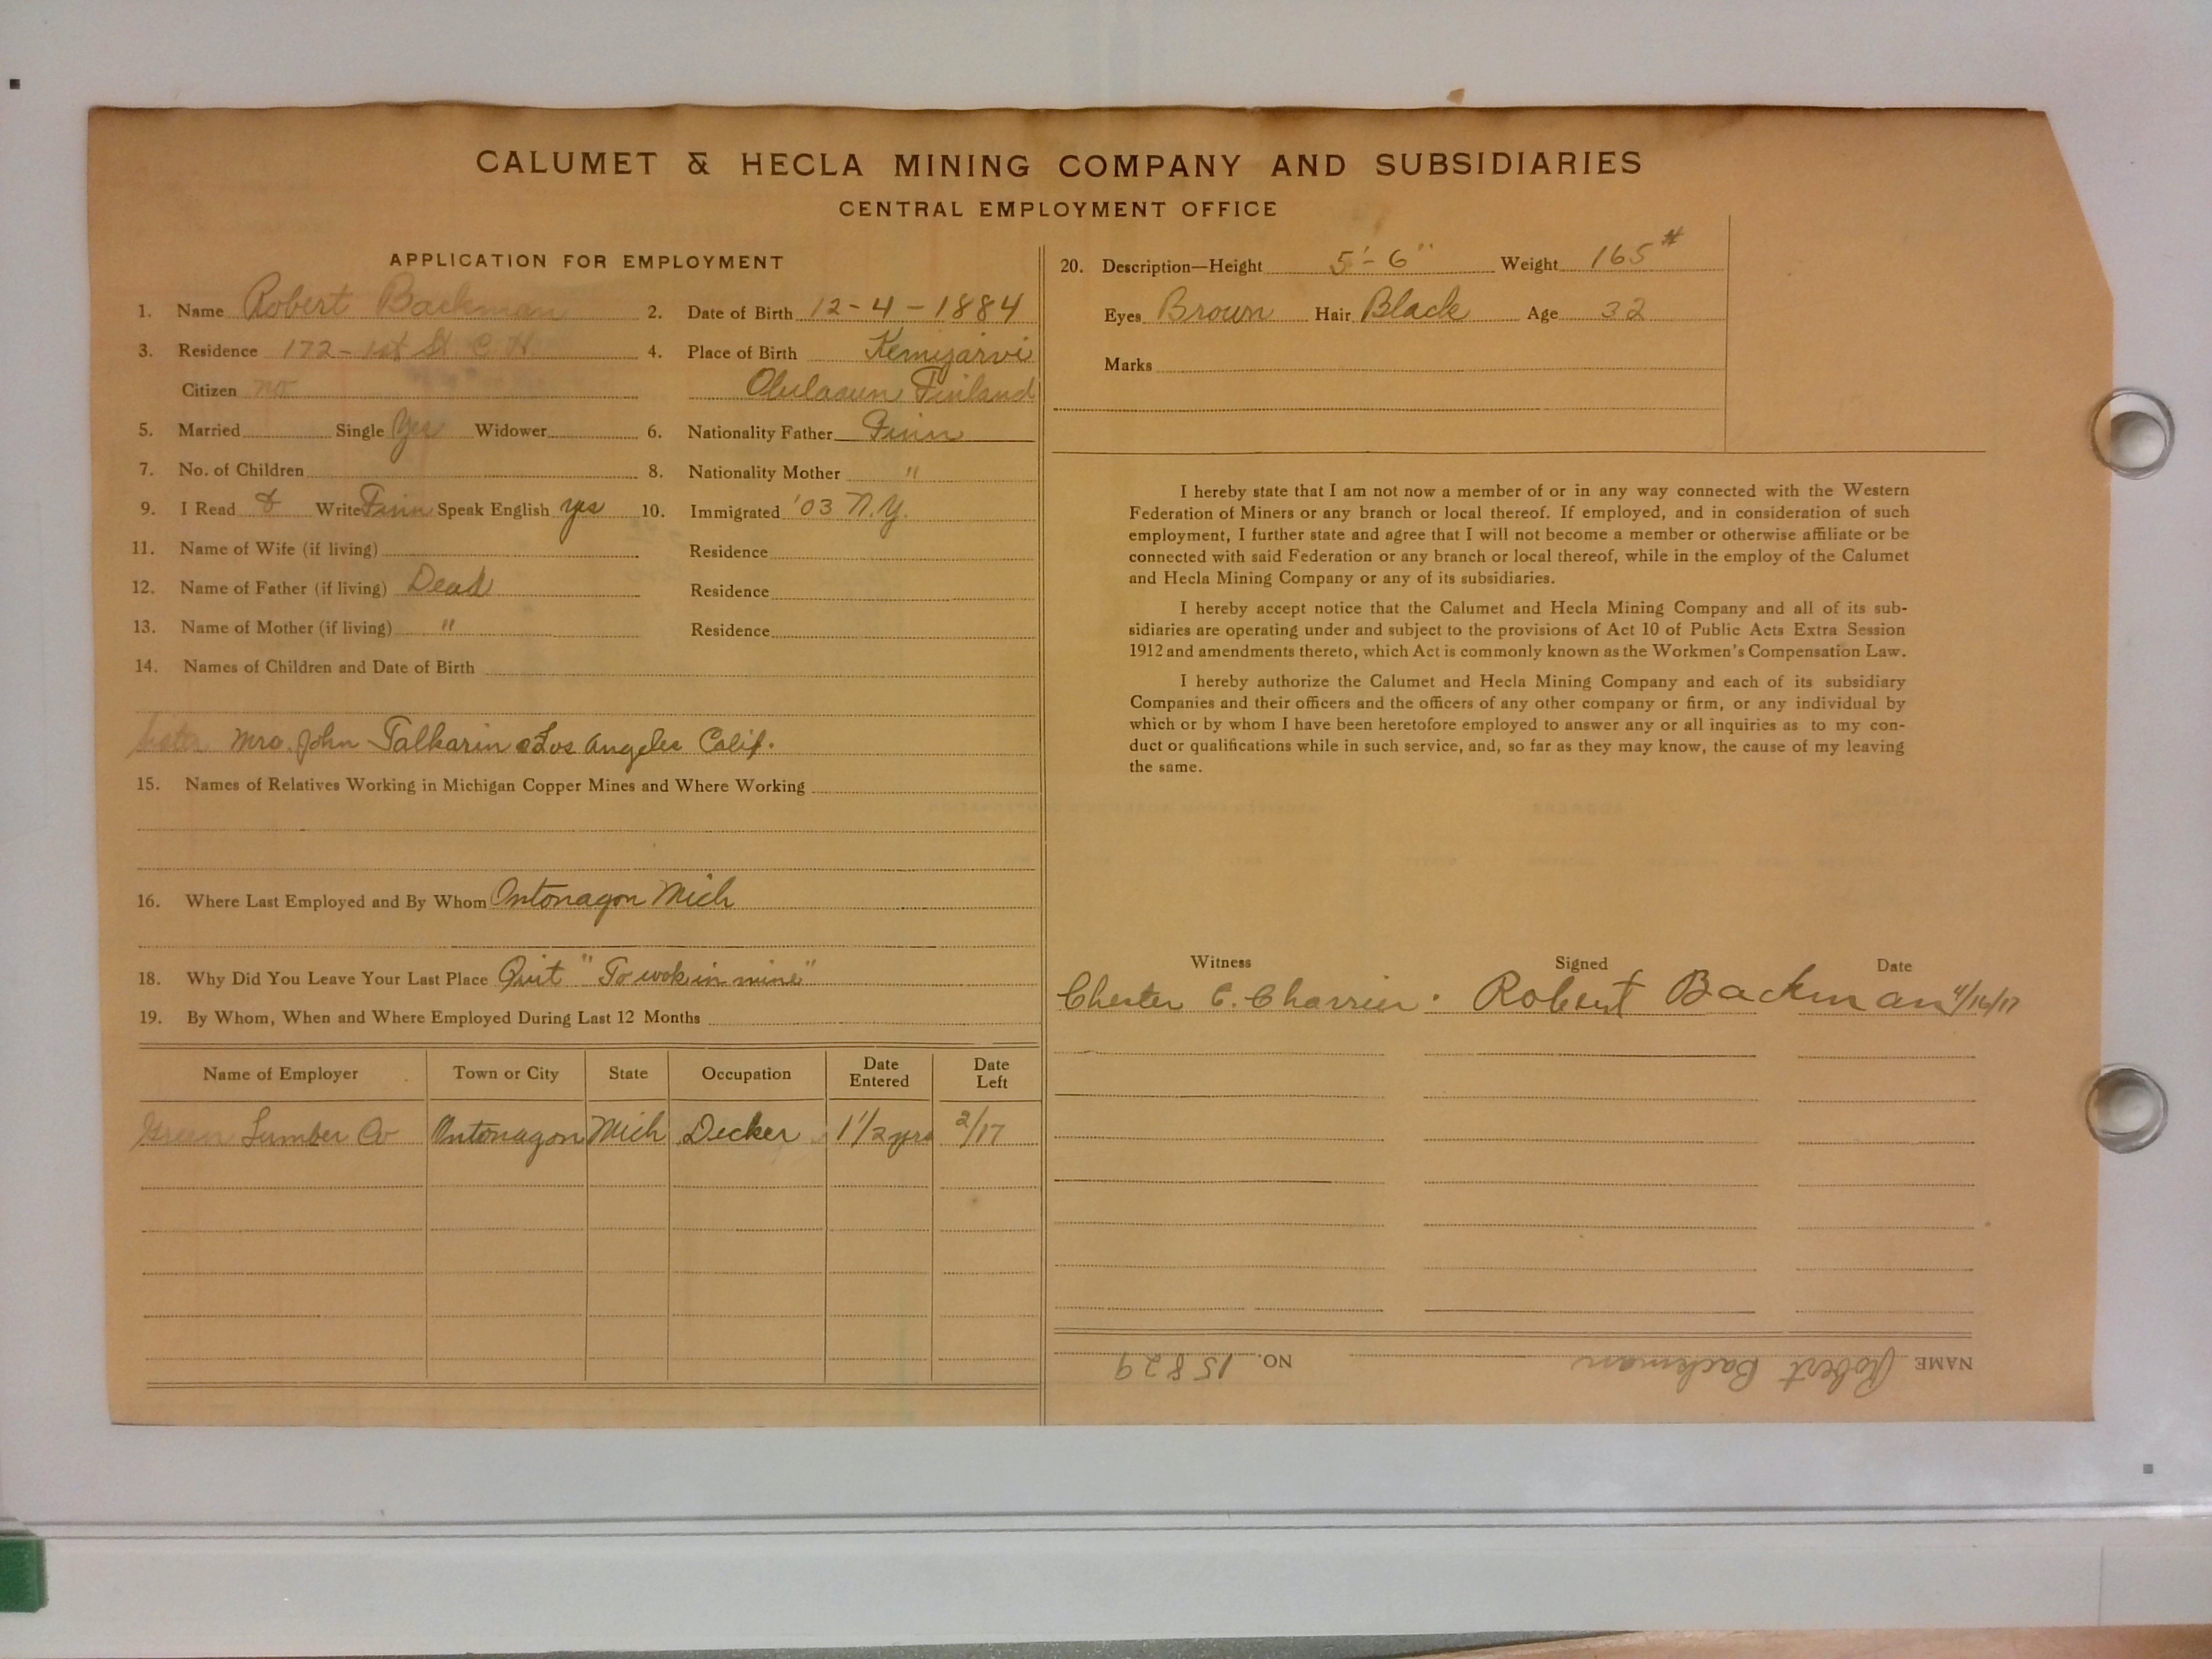 CALUMET & HECLA MINING COMPANY AND SUBSIDIARIES
CENTRAL EMPLOYMENT OFFICE
APPLICATION FOR EMPLOYMENT
1. Name Robert Backman 2. Date of Birth 12-4-1884
3. Residence 172-1st St C.H. 4. Place of Birth Kemijarvi
Citizen no Finland
5. Married Single Yes Widower 6. Nationality Father Finn
7. No. of Children 8. Nationality Mother "
9. I Read & Write Finn Speak English yes 10. Immigrated '03 N.Y.
11. Name of Wife (if living) Residence
12. Name of Father (if living) Dead Residence
13. Name of Mother (if living) " Residence
14. Names of Children and Date of Birth
Sister Mrs. John Talkarin Los Angeles Calif.
15. Names of Relatives Working in Michigan Copper Mines and Where Working
16. Where Last Employed and By Whom Ontonagon Mich
18. Why Did You Leave Your Last Place Quit "To wok in mine"
19. By Whom, When and Where Employed During Last 12 Months
Name of Employer Town or City State Occupation Date Entered Date Left
Green Lumber Co Ontonagon Mich Decker 1 1/2 yrs 2/17
20. Description—Height 5'-6" Weight 165#
Eyes Brown Hair Black Age 32
Marks
I hereby state that I am not now a member of or in any way connected with the Western
Federation of Miners or any branch or local thereof. If employed, and in consideration of such
employment, I further state and agree that I will not become a member or otherwise affiliate or be
connected with said Federation or any branch or local thereof, while in the employ of the Calumet
and Hecla Mining Company or any of its subsidiaries.
I hereby accept notice that the Calumet and Hecla Mining Company and all of its sub-
sidiaries are operating under and subject to the provisions of Act 10 of Public Acts Extra Session
1912 and amendments thereto, which Act is commonly known as the Workmen's Compensation Law.
I hereby authorize the Calumet and Hecla Mining Company and each of its subsidiary
Companies and their officers and the officers of any other company or firm, or any individual by
which or by whom I have been heretofore employed to answer any or all inquiries as to my con-
duct or qualifications while in such service, and, so far as they may know, the cause of my leaving
the same.
Witness Signed Date
Chester C. Charrier. Robert Backman 4/16/17
NAME Robert Backman NO. 15829